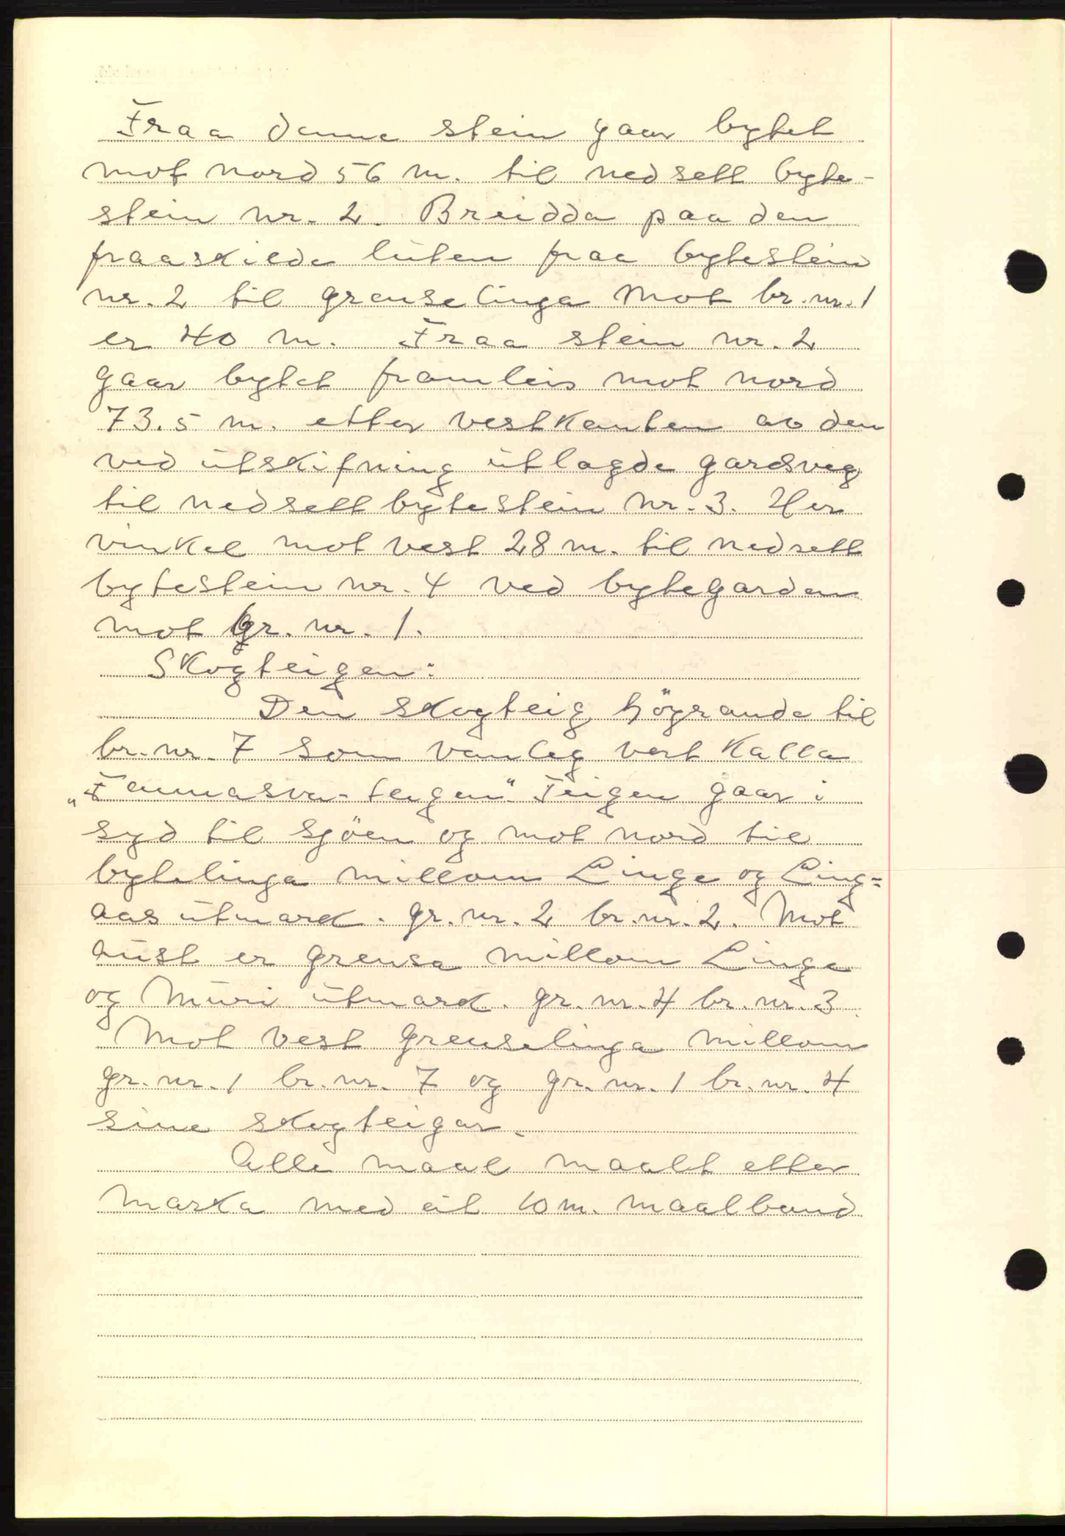 Fraa denne stein gaar bytet
mot nord 56 m. til nedsett byte-
stein nr. 2. Breidda paa den
fraaskilde luten fraa bytestein
nr. 2 til grenselinga mot br. nr. 1
er 40 m. Fraa stein nr. 2
gaar bytet framleis mot nord
73.5 m. etter vestkanten av den
ved utskifning utlagde gardsveg
til nedsett bytestein nr. 3. Her
vinkel mot vest 28 m. til nedsett
bytestein nr. 4 ved bytegarden
mot gr. nr. 1.
Skogteigen:
Den skogteig högrande til
br. nr. 7 som vanleg vert kalla
Teigen gaar i
syd til sjöen og mot nord til
bytelinga millom Linge og Ling=
aas utmark. gr. nr. 2 br. nr. 2. Mot
aust er grensa millom Linge
og Muri utmark. gr. nr. 4 br. nr. 3.
Mot vest grenselinga millom
gr. nr. 1 br. nr. 7 og gr. nr. 1 br. nr. 4
sine skogteigar.
Alle maal maalt etter
marka med eit 10 m. maalband